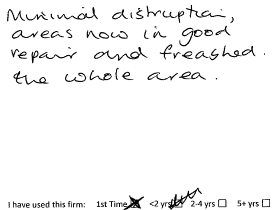 Minimal distruption,
areas now in good
repair and freashed.
the whole area.
I have used this firm: 1st Time <2 yrs 2-4 yrs 5+ yrs